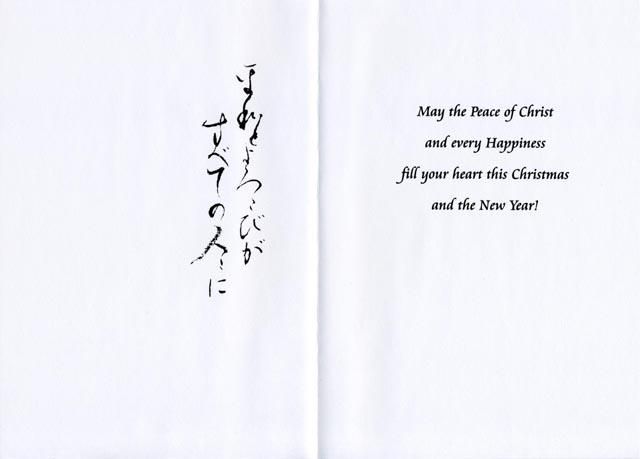 平和とよろこびが
すべての人々に
May the Peace of Christ
and every Happiness
fill your heart this Christmas
and the New Year!